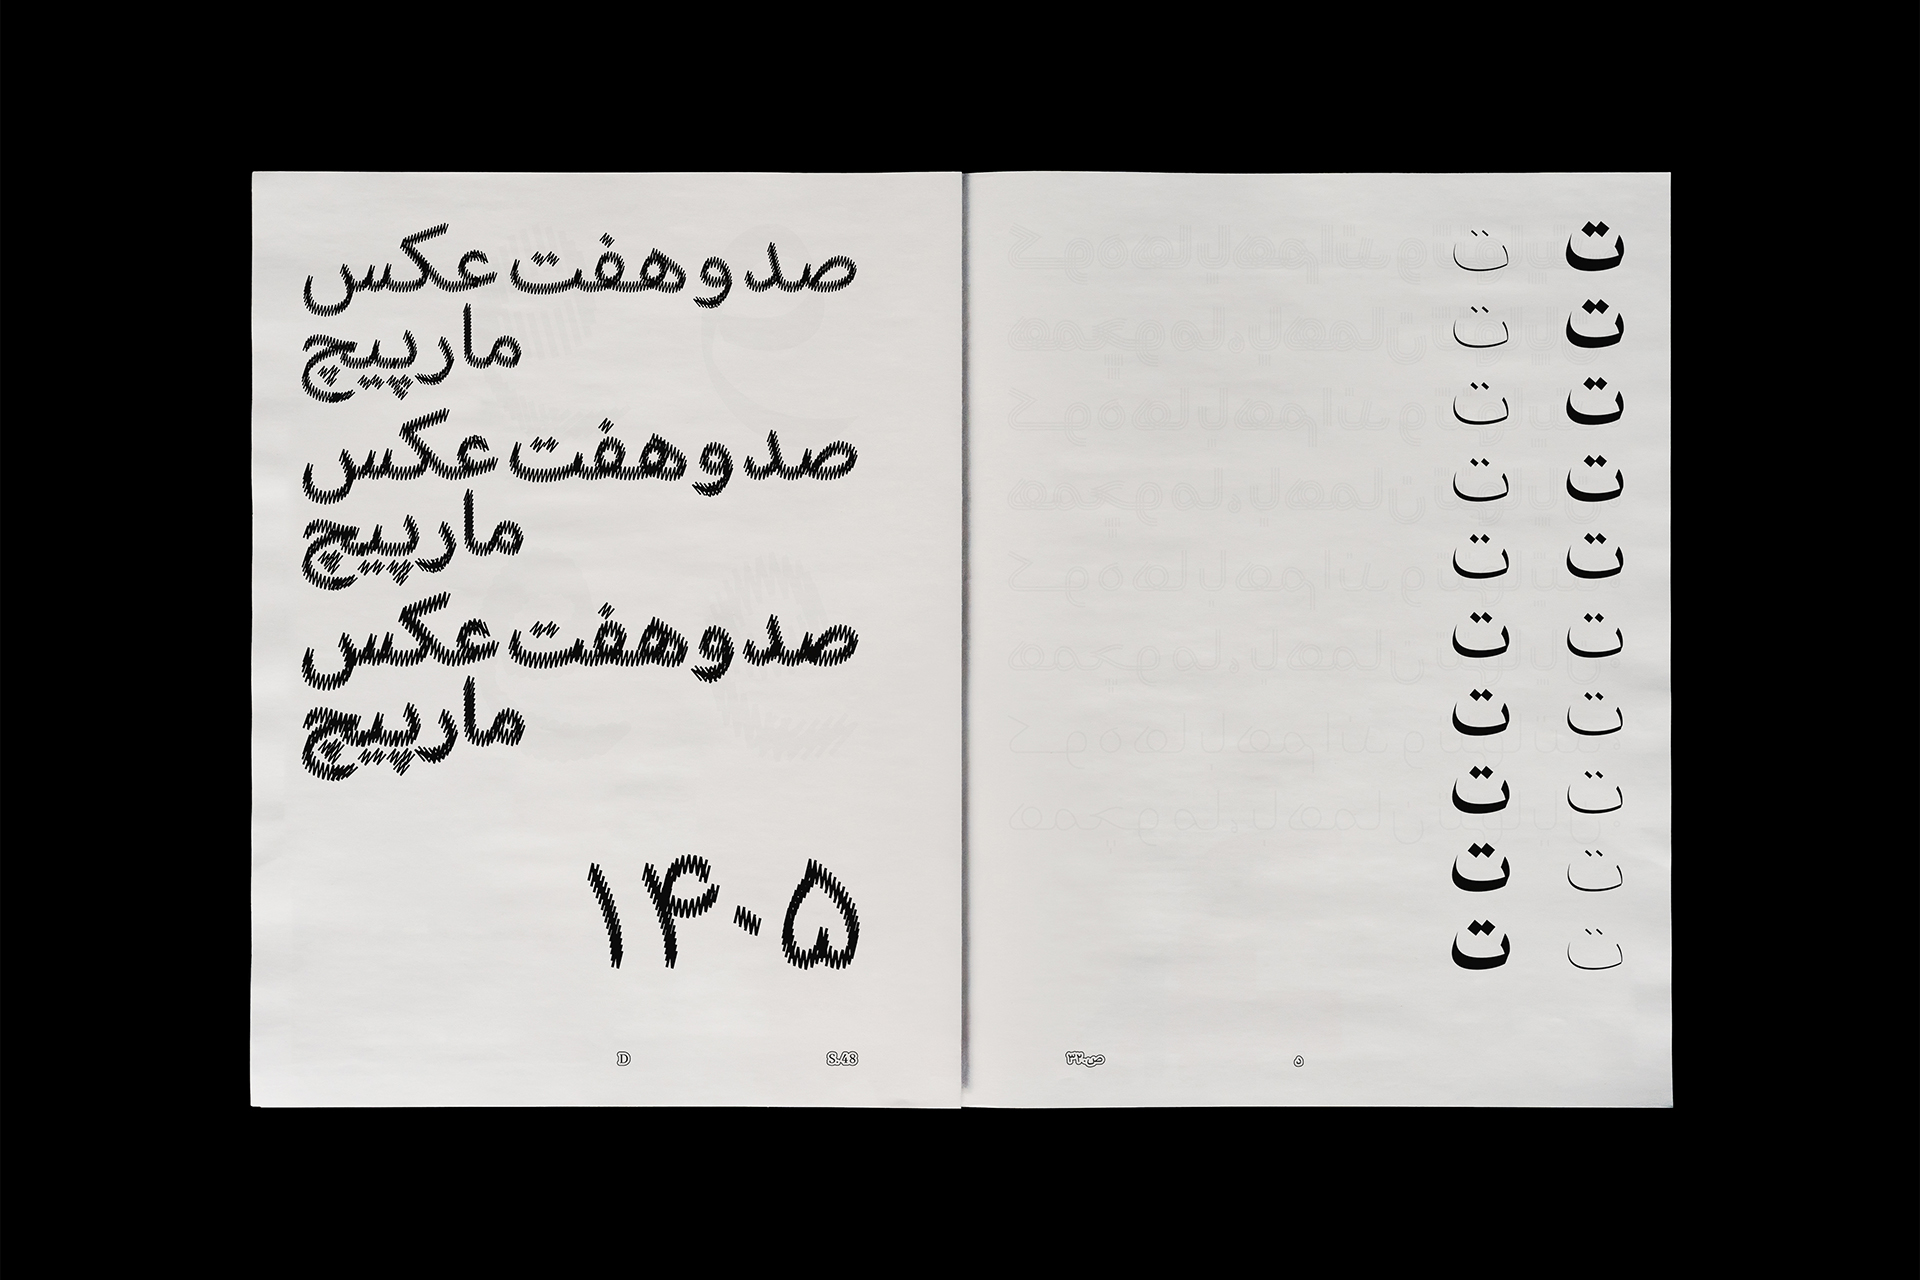 ت ت
ت ت
ت ت
ت ت
ت ت
ت ت
ت ت
ت ت
ت ت
ت ت
د ص.۳۳
صد و هفت عکس
مارپیچ
صد و هفت عکس
مارپیچ
صد و هفت عکس
مارپیچ
۱۴۰۵
D S.48